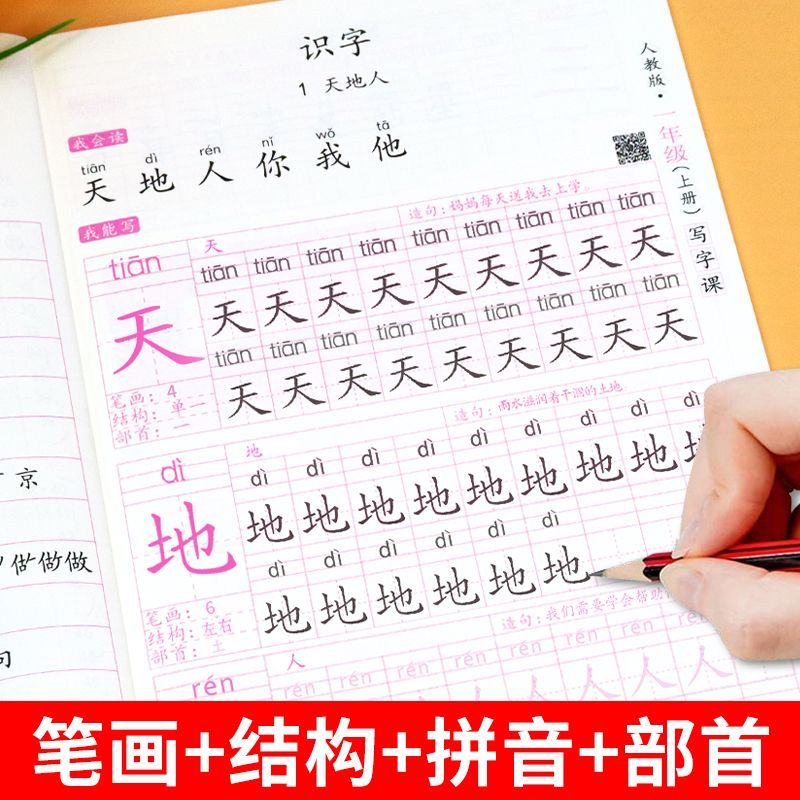 识字
1 天地人
人教版·一年级(上册)写字课
我会读
tiān dì rén nǐ wǒ tā
天 地 人 你 我 他
我能写
tiān 天 造句:妈妈每天送我去上学。
tiān tiān tiān tiān tiān tiān tiān tiān tiān
天 天 天 天 天 天 天 天 天 天
tiān tiān tiān tiān tiān tiān tiān tiān tiān
天 天 天 天 天 天 天 天 天
笔画:4
结构:单一
部首:一
dì 地 造句:雨水滋润着干涸的土地
dì dì dì dì dì dì dì dì dì
地 地 地 地 地 地 地 地 地 地
dì dì dì dì dì dì
地 地 地 地 地 地
笔画:6
结构:左右
部首:土
rén 人 造句:我们需要学会帮助
rén rén rén rén rén rén rén rén
人 人 人 人
京
做做做
句
笔画+结构+拼音+部首